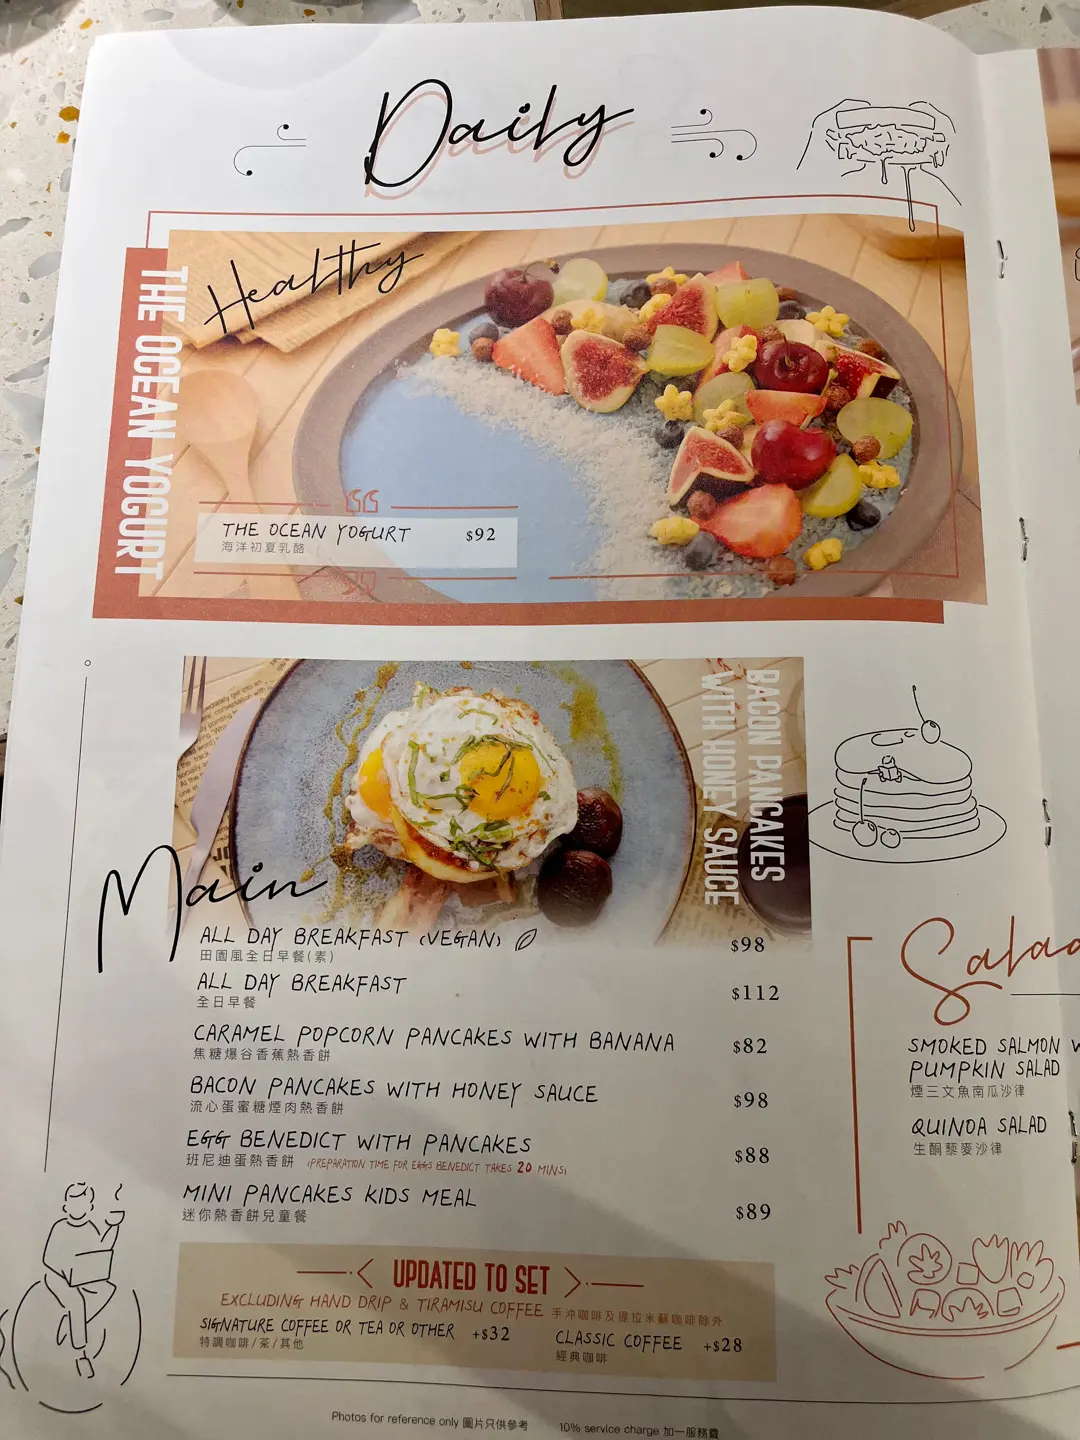 Daily
Healthy
THE OCEAN YOGURT
THE OCEAN YOGURT $92
海洋初夏乳酪
BACON PANCAKES
WITH HONEY SAUCE
Main
ALL DAY BREAKFAST (VEGAN) $98
田園風全日早餐(素)
ALL DAY BREAKFAST $112
全日早餐
CARAMEL POPCORN PANCAKES WITH BANANA $82
焦糖爆谷香蕉熱香餅
BACON PANCAKES WITH HONEY SAUCE $98
流心蛋蜜糖煙肉熱香餅
EGG BENEDICT WITH PANCAKES $88
班尼迪蛋熱香餅 (PREPARATION TIME FOR EGGS BENEDICT TAKES 20 MINS)
MINI PANCAKES KIDS MEAL $89
迷你熱香餅兒童餐
Salad
SMOKED SALMON W
PUMPKIN SALAD
煙三文魚南瓜沙律
QUINOA SALAD
生酮藜麥沙律
UPDATED TO SET
EXCLUDING HAND DRIP & TIRAMISU COFFEE 手沖咖啡及提拉米蘇咖啡除外
SIGNATURE COFFEE OR TEA OR OTHER +$32
特調咖啡/茶/其他
CLASSIC COFFEE +$28
經典咖啡
Photos for reference only 圖片只供參考 10% service charge 加一服務費